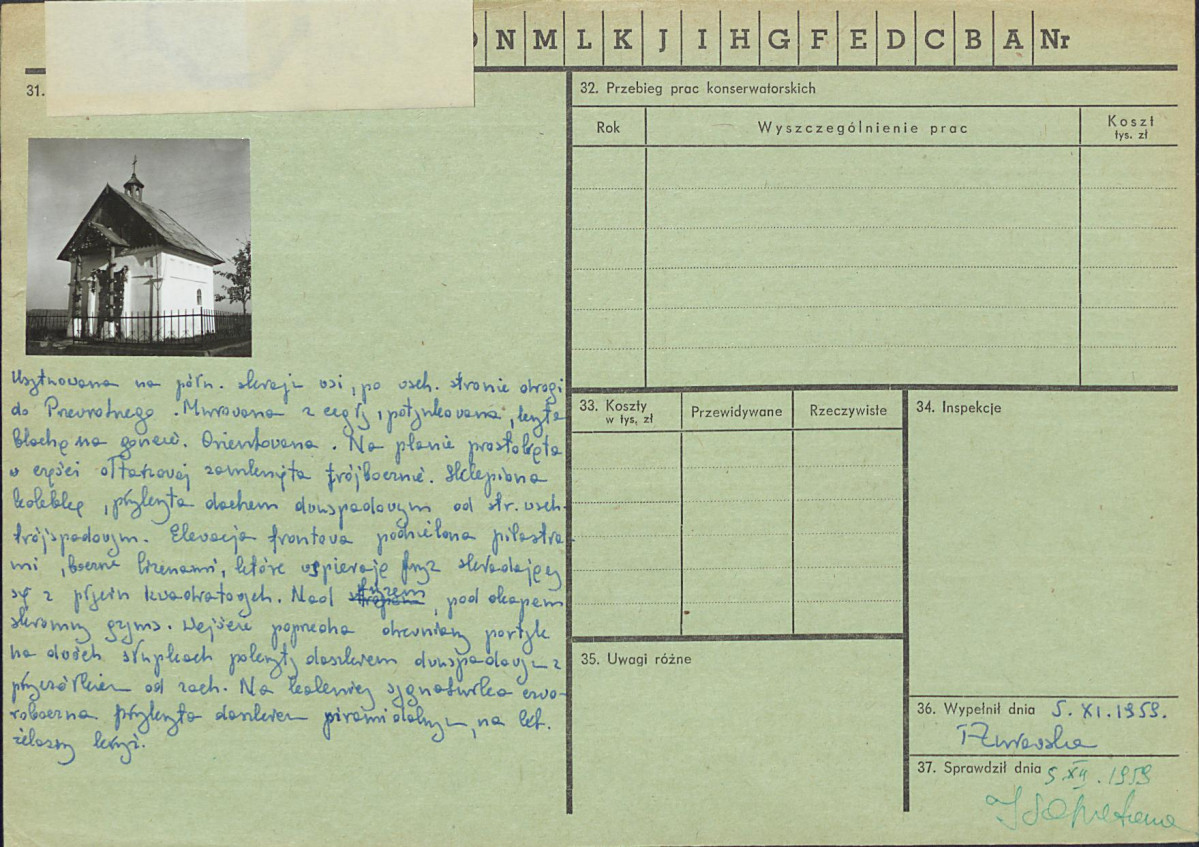 N M L K J I H G F E D C B A Nr
31.
32. Przebieg prac konserwatorskich
Rok
Wyszczególnienie prac
Koszt
tys. zł
Usytuowana na półn. skraju wsi, po wsch. stronie drogi
do Przewrotnego. Murowana z cegły, potynkowana, kryta
blachą na goncie. Orientowana. Na planie prostokąta
w części ołtarzowej zamknięta trójbocznie. Sklepiona
kolebką, przykryta dachem dwuspadowym od str. wsch.
trójspadowym. Elewacja frontowa podzielona pilastra
mi, boczne lizenami, które wspierają fryz składający
się z płycin kwadratowych. Nad fryzem, pod okapem
skromny gzyms. Wejście poprzedza drewniany portyk
na dwóch słupkach pokryty daszkiem dwuspadowym z
przyczółkiem od zach. Na kalenicy sygnaturka czwo-
roboczna przykryta daszkiem piramidalnym, na
żelazny krzyż.
33. Koszty
w tys. zł
Przewidywane
Rzeczywiste
34. Inspekcje
35. Uwagi różne
36. Wypełnił dnia 5. XI. 1959.
37. Sprawdził dnia 5. XII. 1959